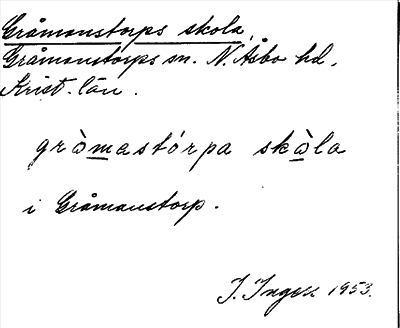 Gråmanstorps skola,
Gråmanstorps sn. N. Åsbo hd,
Krist. län.
gròmastórpa skòla
i Gråmanstorp.
I. Ingers 1953.